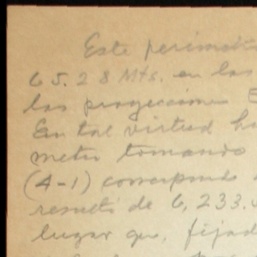 Este perímetro
65.28 Mts. en las
las proyecciones E
En tal virtud h
metro tomando
(4-1) corresponde
resultó de 6,233.
lugar que, fijad